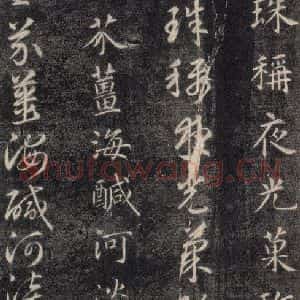 珠稱夜光菓
珠稱夜光菓
芥薑海鹹河淡
芥薑海鹹河
shufawang.CN